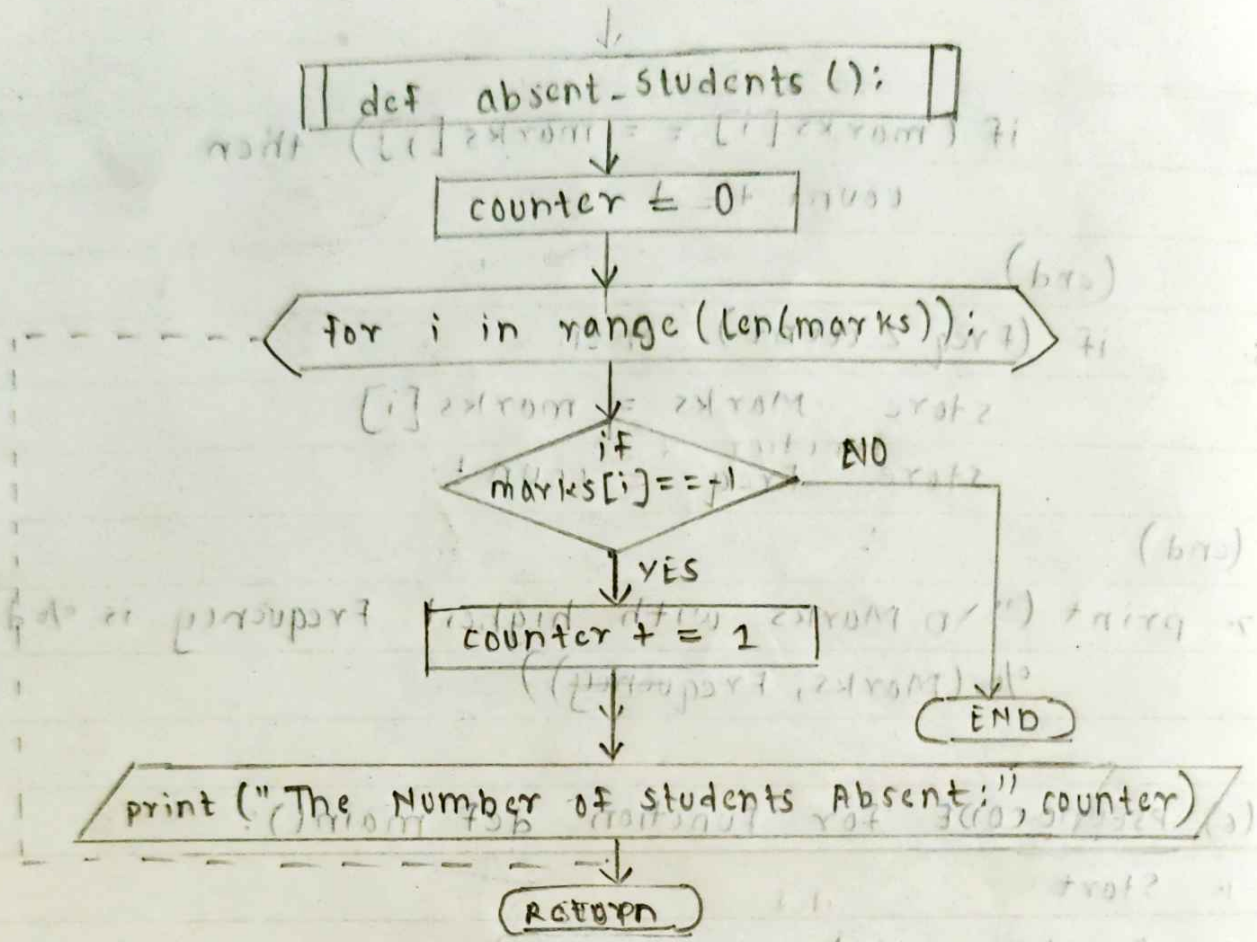 def absent_Students ():
counter = 0
for i in range (len(marks)):
if
marks[i] == -1
NO
YES
counter + = 1
END
print ("The Number of Students Absent:", counter)
Return